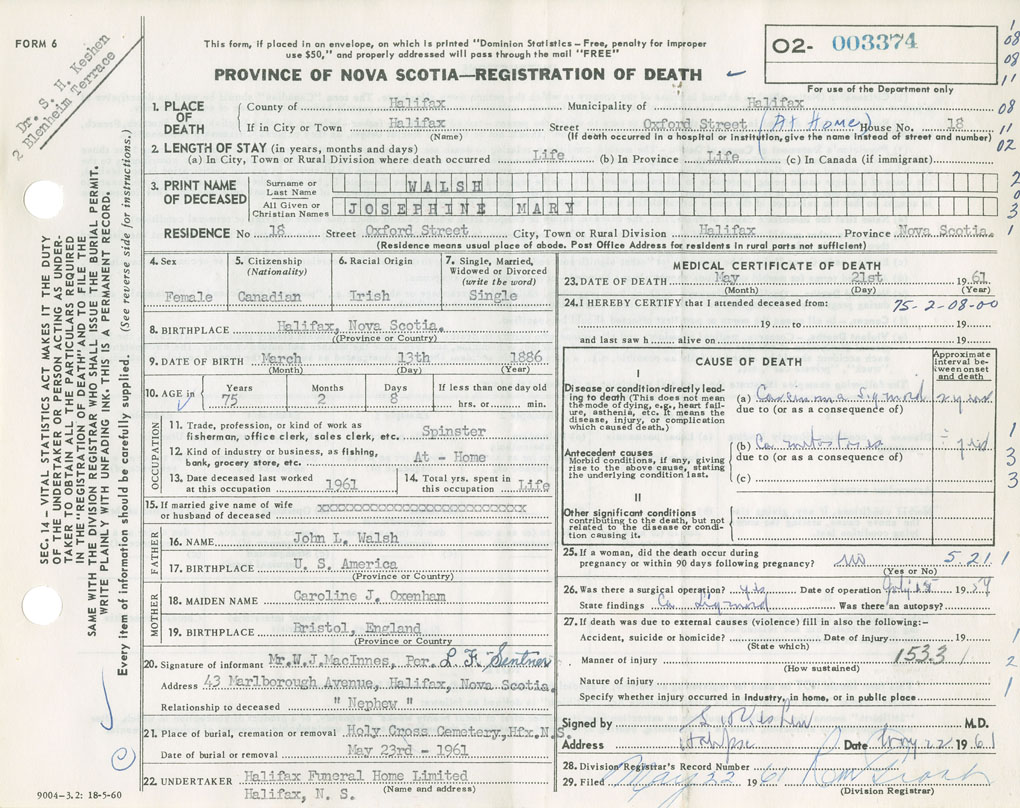 FORM 6
Dr. S. H. Keshen
2 Blenheim Terrace
This form, if placed in an envelope, on which is printed "Dominion Statistics – Free, penalty for improper
use $50," and properly addressed will pass through the mail "FREE"
PROVINCE OF NOVA SCOTIA—REGISTRATION OF DEATH
O2- 003374
For use of the Department only
1. PLACE OF DEATH County of Halifax Municipality of Halifax
If in City or Town Halifax Street Oxford Street (At Home) House No. 18
(Name) (If death occurred in a hospital or institution, give its name instead of street and number)
2. LENGTH OF STAY (in years, months and days)
(a) In City, Town or Rural Division where death occurred Life (b) In Province Life (c) In Canada (if immigrant)
3. PRINT NAME OF DECEASED Surname or Last Name WALSH
All Given or Christian Names JOSEPHINE MARY
RESIDENCE No 18 Street Oxford Street City, Town or Rural Division Halifax Province Nova Scotia.
(Residence means usual place of abode. Post Office Address for residents in rural parts not sufficient)
SEC. 14 – VITAL STATISTICS ACT MAKES IT THE DUTY
OF THE UNDERTAKER OR PERSON ACTING AS UNDER-
TAKER TO OBTAIN ALL THE PARTICULARS REQUIRED
IN THE "REGISTRATION OF DEATH" AND TO FILE THE
SAME WITH THE DIVISION REGISTRAR WHO SHALL ISSUE THE BURIAL PERMIT.
WRITE PLAINLY WITH UNFADING INK. THIS IS A PERMANENT RECORD.
Every item of information should be carefully supplied. (See reverse side for instructions.)
4. Sex Female
5. Citizenship (Nationality) Canadian
6. Racial Origin Irish
7. Single, Married, Widowed or Divorced (write the word) Single
8. BIRTHPLACE Halifax, Nova Scotia.
(Province or Country)
9. DATE OF BIRTH March 13th 1886
(Month) (Day) (Year)
10. AGE in Years 75 Months 2 Days 8 If less than one day old
hrs. or min.
OCCUPATION
11. Trade, profession, or kind of work as
fisherman, office clerk, sales clerk, etc. Spinster
12. Kind of industry or business, as fishing,
bank, grocery store, etc. At - Home
13. Date deceased last worked at this occupation 1961
14. Total yrs. spent in this occupation Life
15. If married give name of wife
or husband of deceased xxxxxxxxxxxxxxxxxxxxxxxxxx
FATHER
16. NAME John L. Walsh
17. BIRTHPLACE U. S. America
(Province or Country)
MOTHER
18. MAIDEN NAME Caroline J. Oxenham
19. BIRTHPLACE Bristol, England
(Province or Country)
20. Signature of informant Mr.W.J.MacInnes, Per.
Address 43 Marlborough Avenue, Halifax, Nova Scotia.
Relationship to deceased " Nephew "
21. Place of burial, cremation or removal Holy Cross Cemetery,Hfx.N.S.
Date of burial or removal May 23rd - 1961
22. UNDERTAKER Halifax Funeral Home Limited
(Name and address)
Halifax, N. S.
9004–3.2: 18-5-60
MEDICAL CERTIFICATE OF DEATH
23. DATE OF DEATH May 21st 1961
(Month) (Day) (Year)
24. I HEREBY CERTIFY that I attended deceased from: 75-2-08-00
19 to 19
and last saw h alive on 19
CAUSE OF DEATH
Approximate interval between onset and death
I
Disease or condition-directly lead-
ing to death (This does not mean
the mode of dying, e.g., heart failure,
asthenia, etc. It means the
disease, injury, or complication
which caused death.)
(a) Carcinoma Sigmoid
due to (or as a consequence of)
Antecedent causes
Morbid conditions, if any, giving
rise to the above cause, stating
the underlying condition last.
(b) Ca
due to (or as a consequence of)
(c)
II
Other significant conditions
contributing to the death, but not
related to the disease or condi-
tion causing it.
25. If a woman, did the death occur during
pregnancy or within 90 days following pregnancy? no 5.21
(Yes or No)
26. Was there a surgical operation? yes Date of operation July 19
State findings Ca Sigmoid Was there an autopsy?
27. If death was due to external causes (violence) fill in also the following:-
Accident, suicide or homicide? Date of injury 19
(State which)
Manner of injury 153.3
(How sustained)
Nature of injury
Specify whether injury occurred in industry, in home, or in public place
Signed by S. H. Keshen M.D.
Address Halifax Date May 22 1961
28. Division Registrar's Record Number
29. Filed May 22 1961
(Division Registrar)